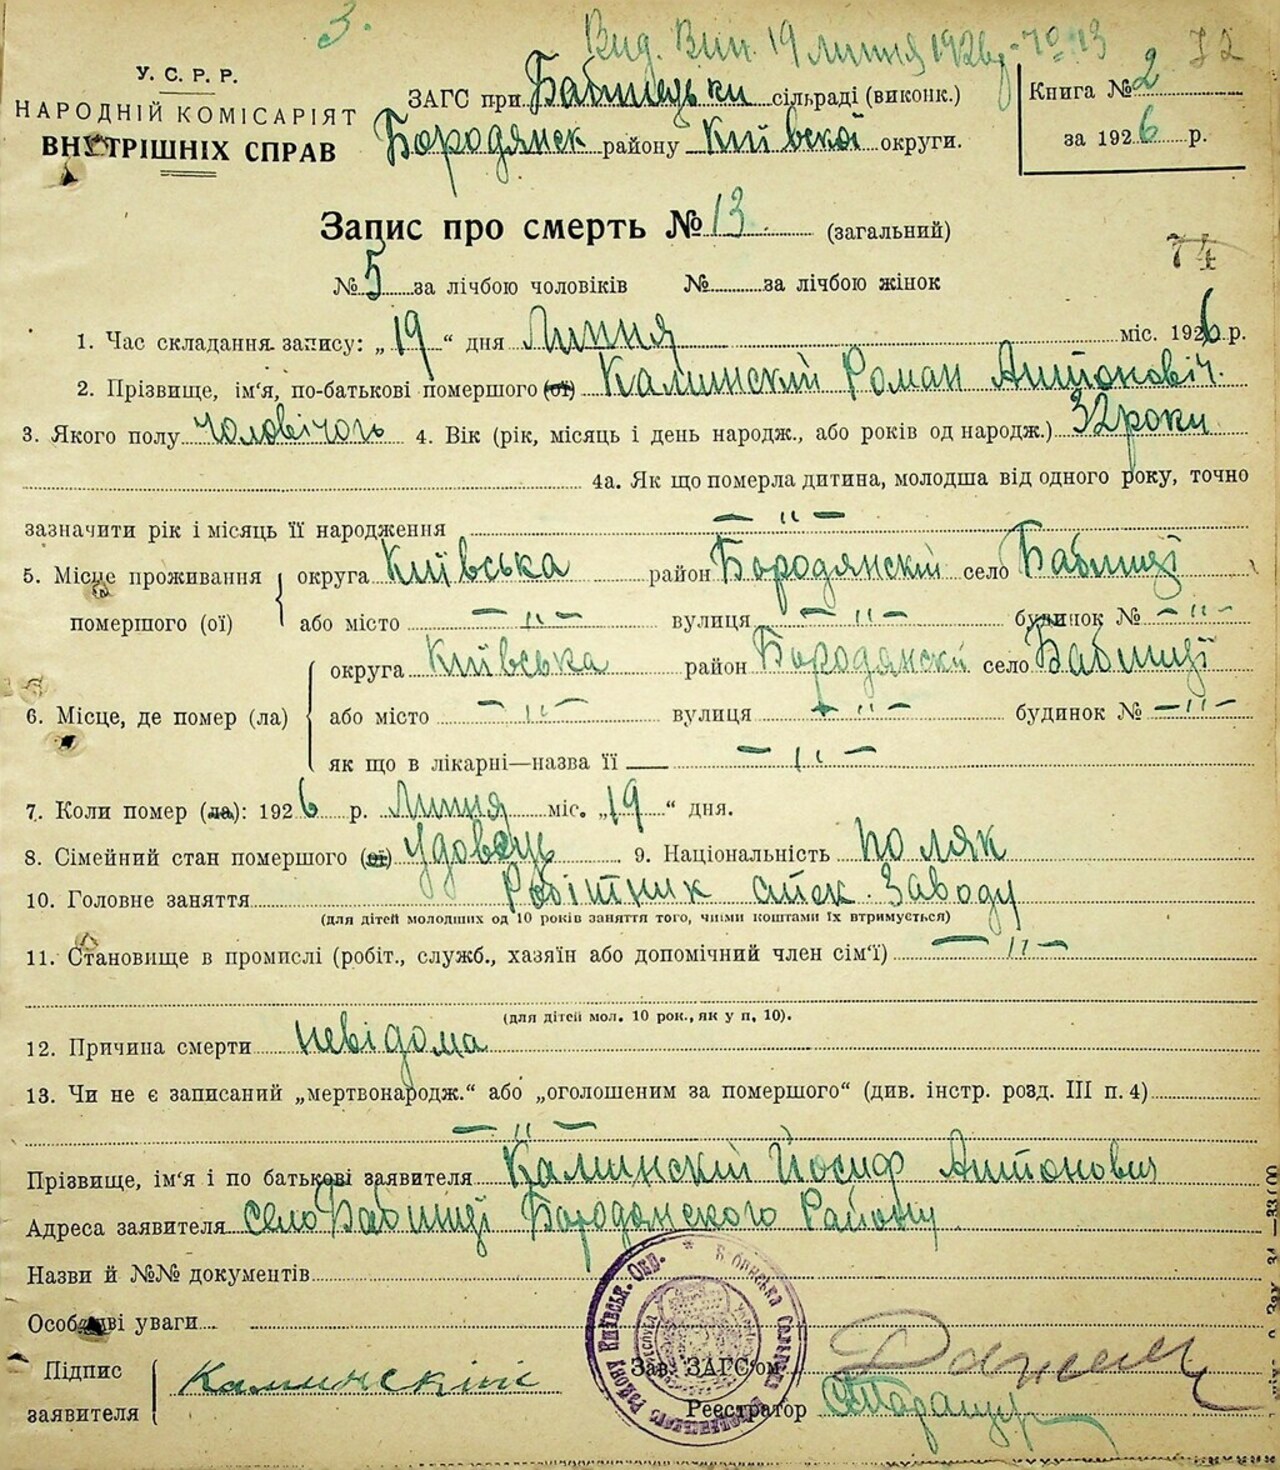 3.
Вид. Вип. 19 Липня 1926 р. № 13
72
У. С. Р. Р.
НАРОДНІЙ КОМІСАРІЯТ
ВНУТРІШНІХ СПРАВ
ЗАГС при Бабинецьки сільраді (виконк.)
Бородянск району Київскої округи.
Книга № 2
за 1926 р.
Запис про смерть № 13. (загальний)
74
№ 5 за лічбою чоловіків № за лічбою жінок
1. Час складання запису: „19“ дня Липня міс. 1926 р.
2. Прізвище, ім'я, по-батькові помершого (ої) Калинскій Роман Антоновіч.
3. Якого полу чоловічого 4. Вік (рік, місяць і день народж., або років од народж.) 32 роки
4а. Як що померла дитина, молодша від одного року, точно
зазначити рік і місяць її народження — " —
5. Місце проживання помершого (ої) округа Київська район Бородянскій село Бабинці
або місто — " — вулиця — " — будинок № — " —
6. Місце, де помер (ла) округа Київська район Бородянскій село Бабинці
або місто — " — вулиця — " — будинок № — " —
як що в лікарні—назва її — " —
7. Коли помер (ла): 1926 р. Липня міс. „19“ дня.
8. Сімейний стан помершого (ої) удовець 9. Національність поляк
10. Головне заняття Робітник стек. Заводу
(для дітей молодших од 10 років заняття того, чиїми коштами їх втримується)
11. Становище в промислі (робіт., служб., хазяїн або допомічний член сім'ї) — " —
(для дітей мол. 10 рок., як у п, 10).
12. Причина смерти невідома
13. Чи не є записаний „мертвонародж.“ або „оголошеним за помершого“ (див. інстр. розд. III п. 4)
— " —
Прізвище, ім'я і по батькові заявителя Калинскій Йосиф Антонович
Адреса заявителя село Бабинці Бородянского Району
Назви й №№ документів
Особливі уваги
Підпис заявителя Калинскій
Зав. ЗАГС'ом
Реестратор